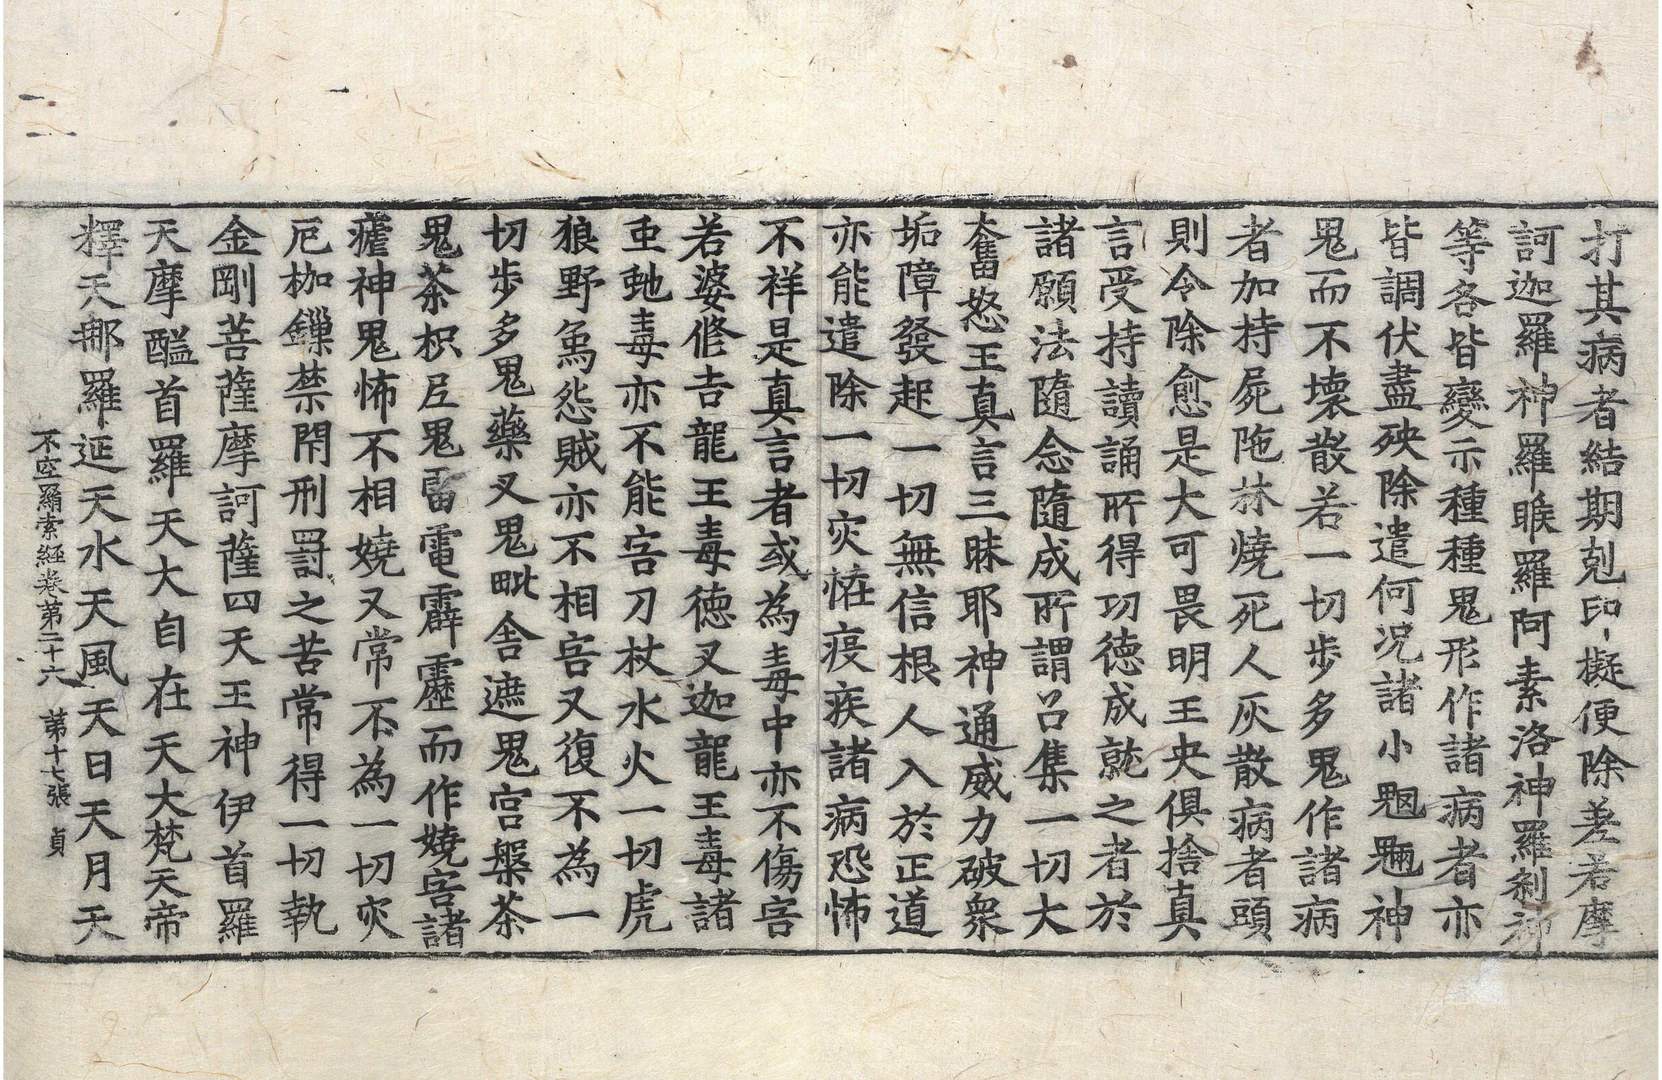 打其病者結期剋印擬便除差若摩
訶迦羅神羅睺羅阿素洛神羅剎神
等各皆變示種種鬼形作諸病者亦
皆調伏盡殃除遣何况諸小魍魎神
鬼而不壞散若一切步多鬼作諸病
者加持屍陁林燒死人灰散病者頭
則令除愈是大可畏明王央俱捨真
言受持讀誦所得功德成就之者於
諸願法隨念隨成所謂召集一切大
奮怒王真言三昧耶神通威力破衆
垢障發起一切無信根人入於正道
亦能遣除一切灾恠疫疾諸病恐怖
不祥是真言者或為毒中亦不傷害
若婆修吉龍王毒德叉迦龍王毒諸
䖝虵毒亦不能害刀杖水火一切虎
狼野鳥怨賊亦不相害又復不為一
切步多鬼藥叉鬼毗舍遮鬼宮槃茶
鬼茶枳𡰱鬼雷電霹靂而作嬈害諸
瘧神鬼怖不相嬈又常不為一切灾
厄枷鏁禁閇刑罸之苦常得一切執
金剛菩薩摩訶薩四天王神伊首羅
天摩醯首羅天大自在天大梵天帝
釋天那羅延天水天風天日天月天
不空羂索經卷第二十六　第十七張　貞